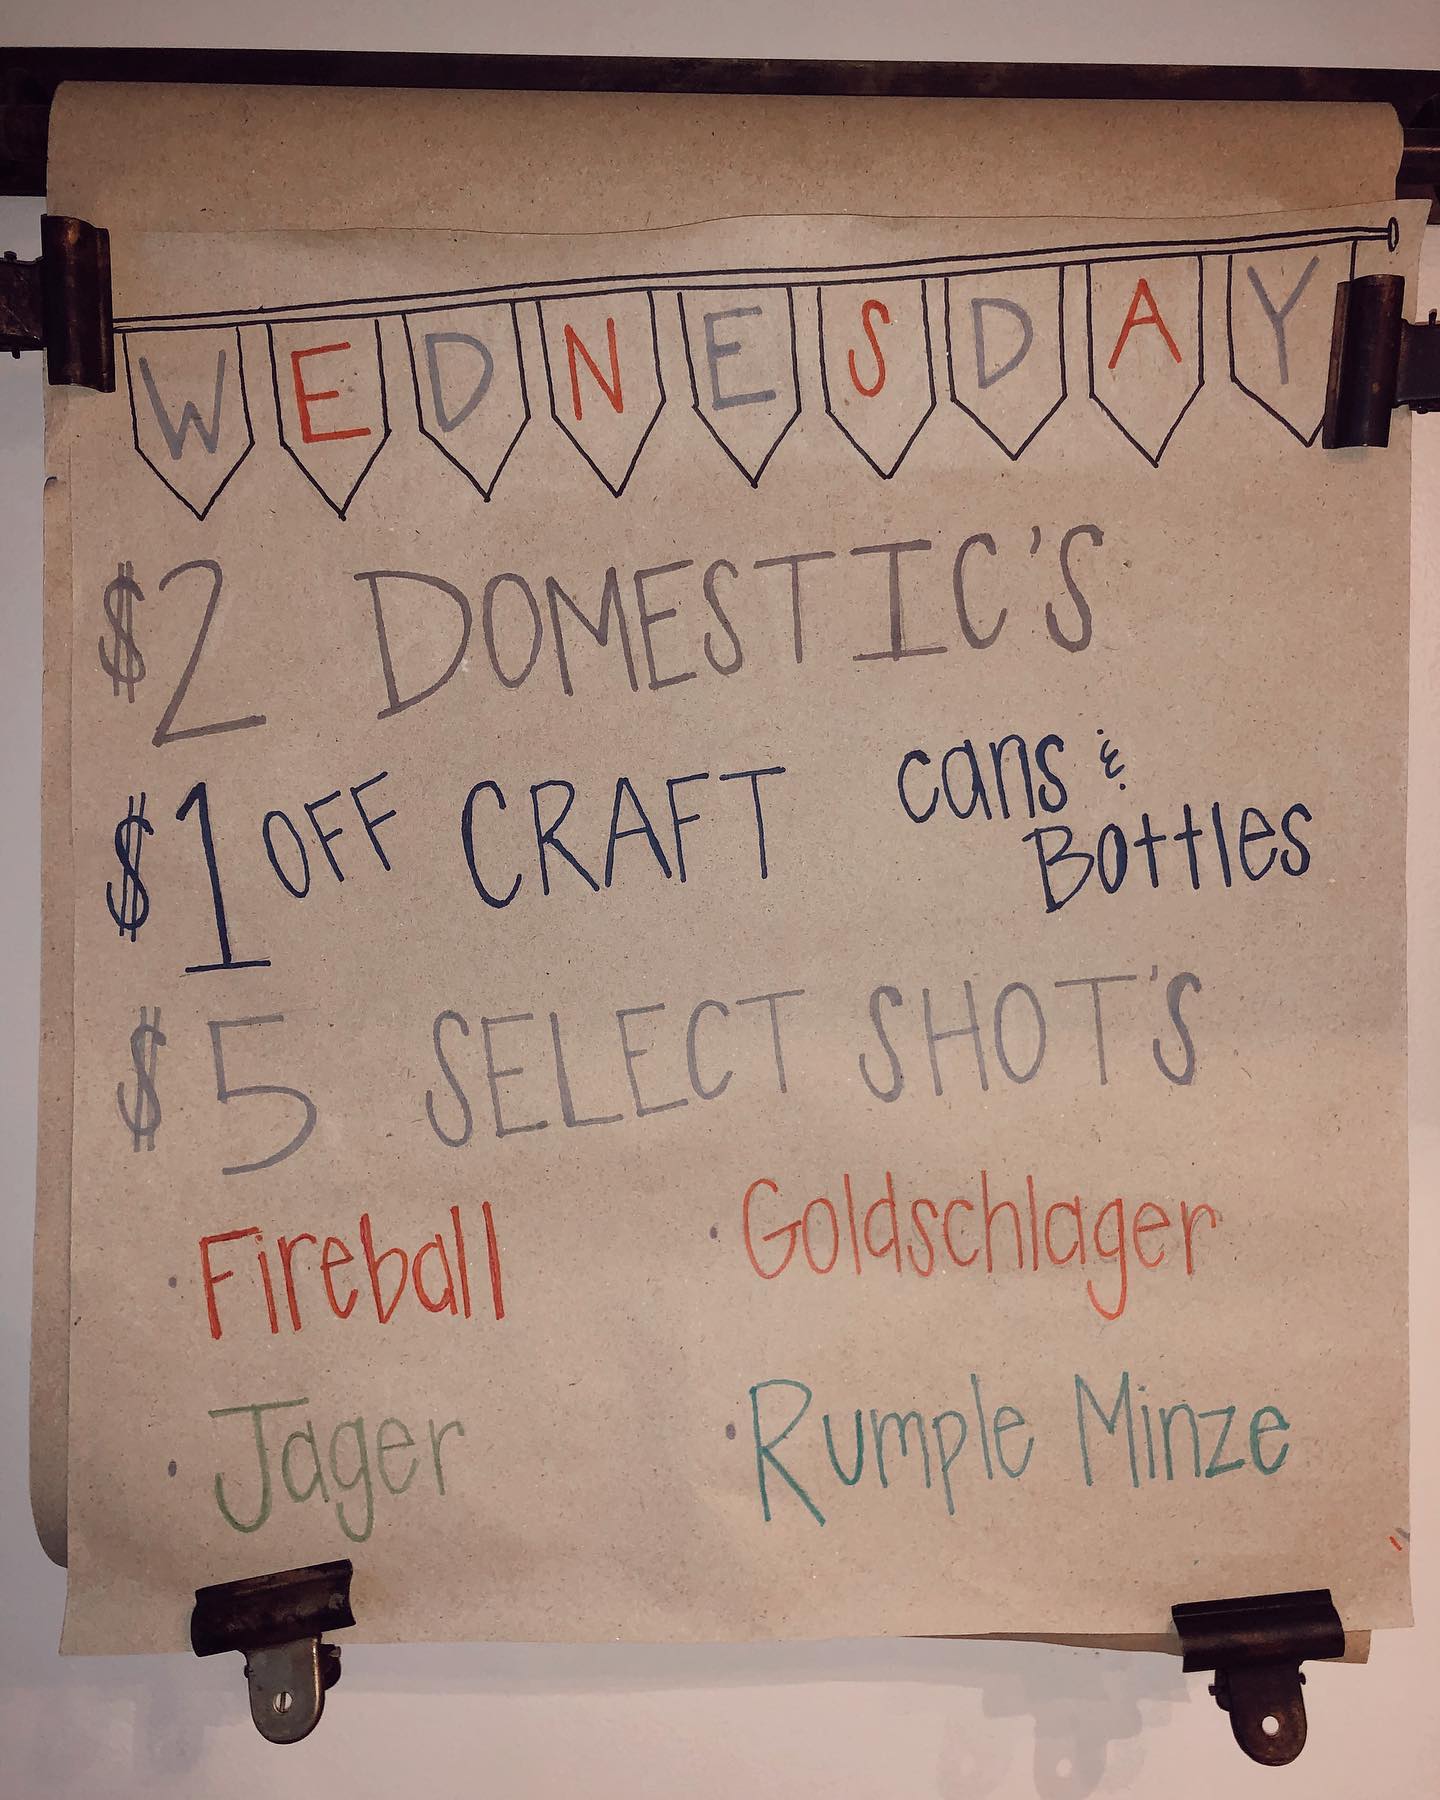 WEDNESDAY
$2 DOMESTIC'S
$1 OFF CRAFT cans &
Bottles
$5 SELECT SHOT'S
· Fireball · Goldschlager
· Jager · Rumple Minze